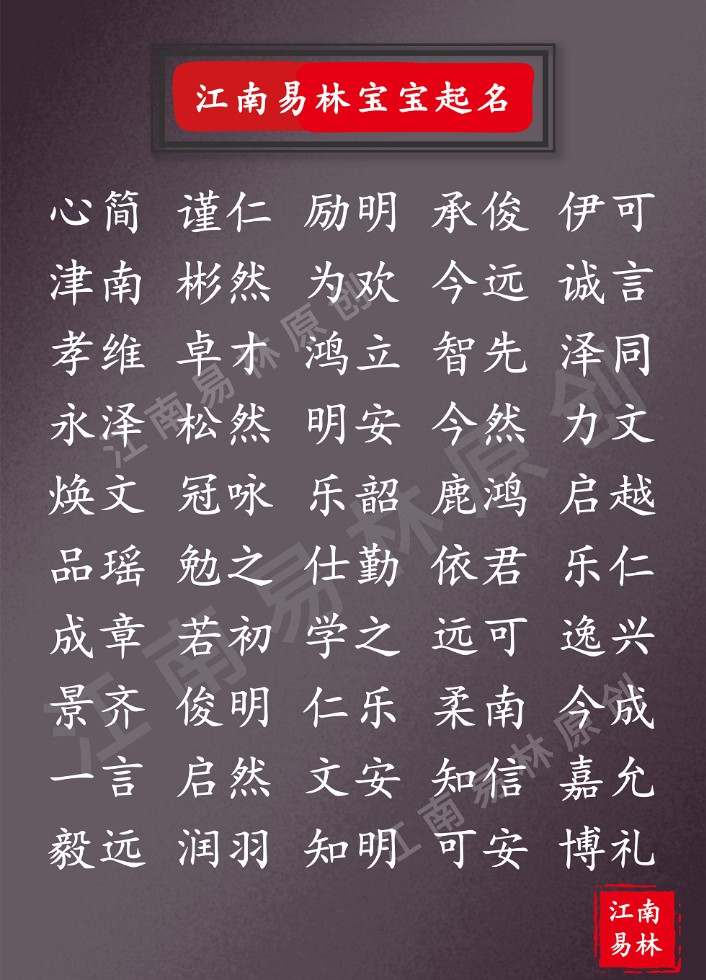 江南易林宝宝起名
心简 谨仁 励明 承俊 伊可
津南 彬然 为欢 今远 诚言
孝维 卓才 鸿立 智先 泽同
永泽 松然 明安 今然 力文
焕文 冠咏 乐韶 鹿鸿 启越
品瑶 勉之 仕勤 依君 乐仁
成章 若初 学之 远可 逸兴
景齐 俊明 仁乐 柔南 今成
一言 启然 文安 知信 嘉允
毅远 润羽 知明 可安 博礼
江南易林原创
江南易林原创
江南易林原创
江南
易林